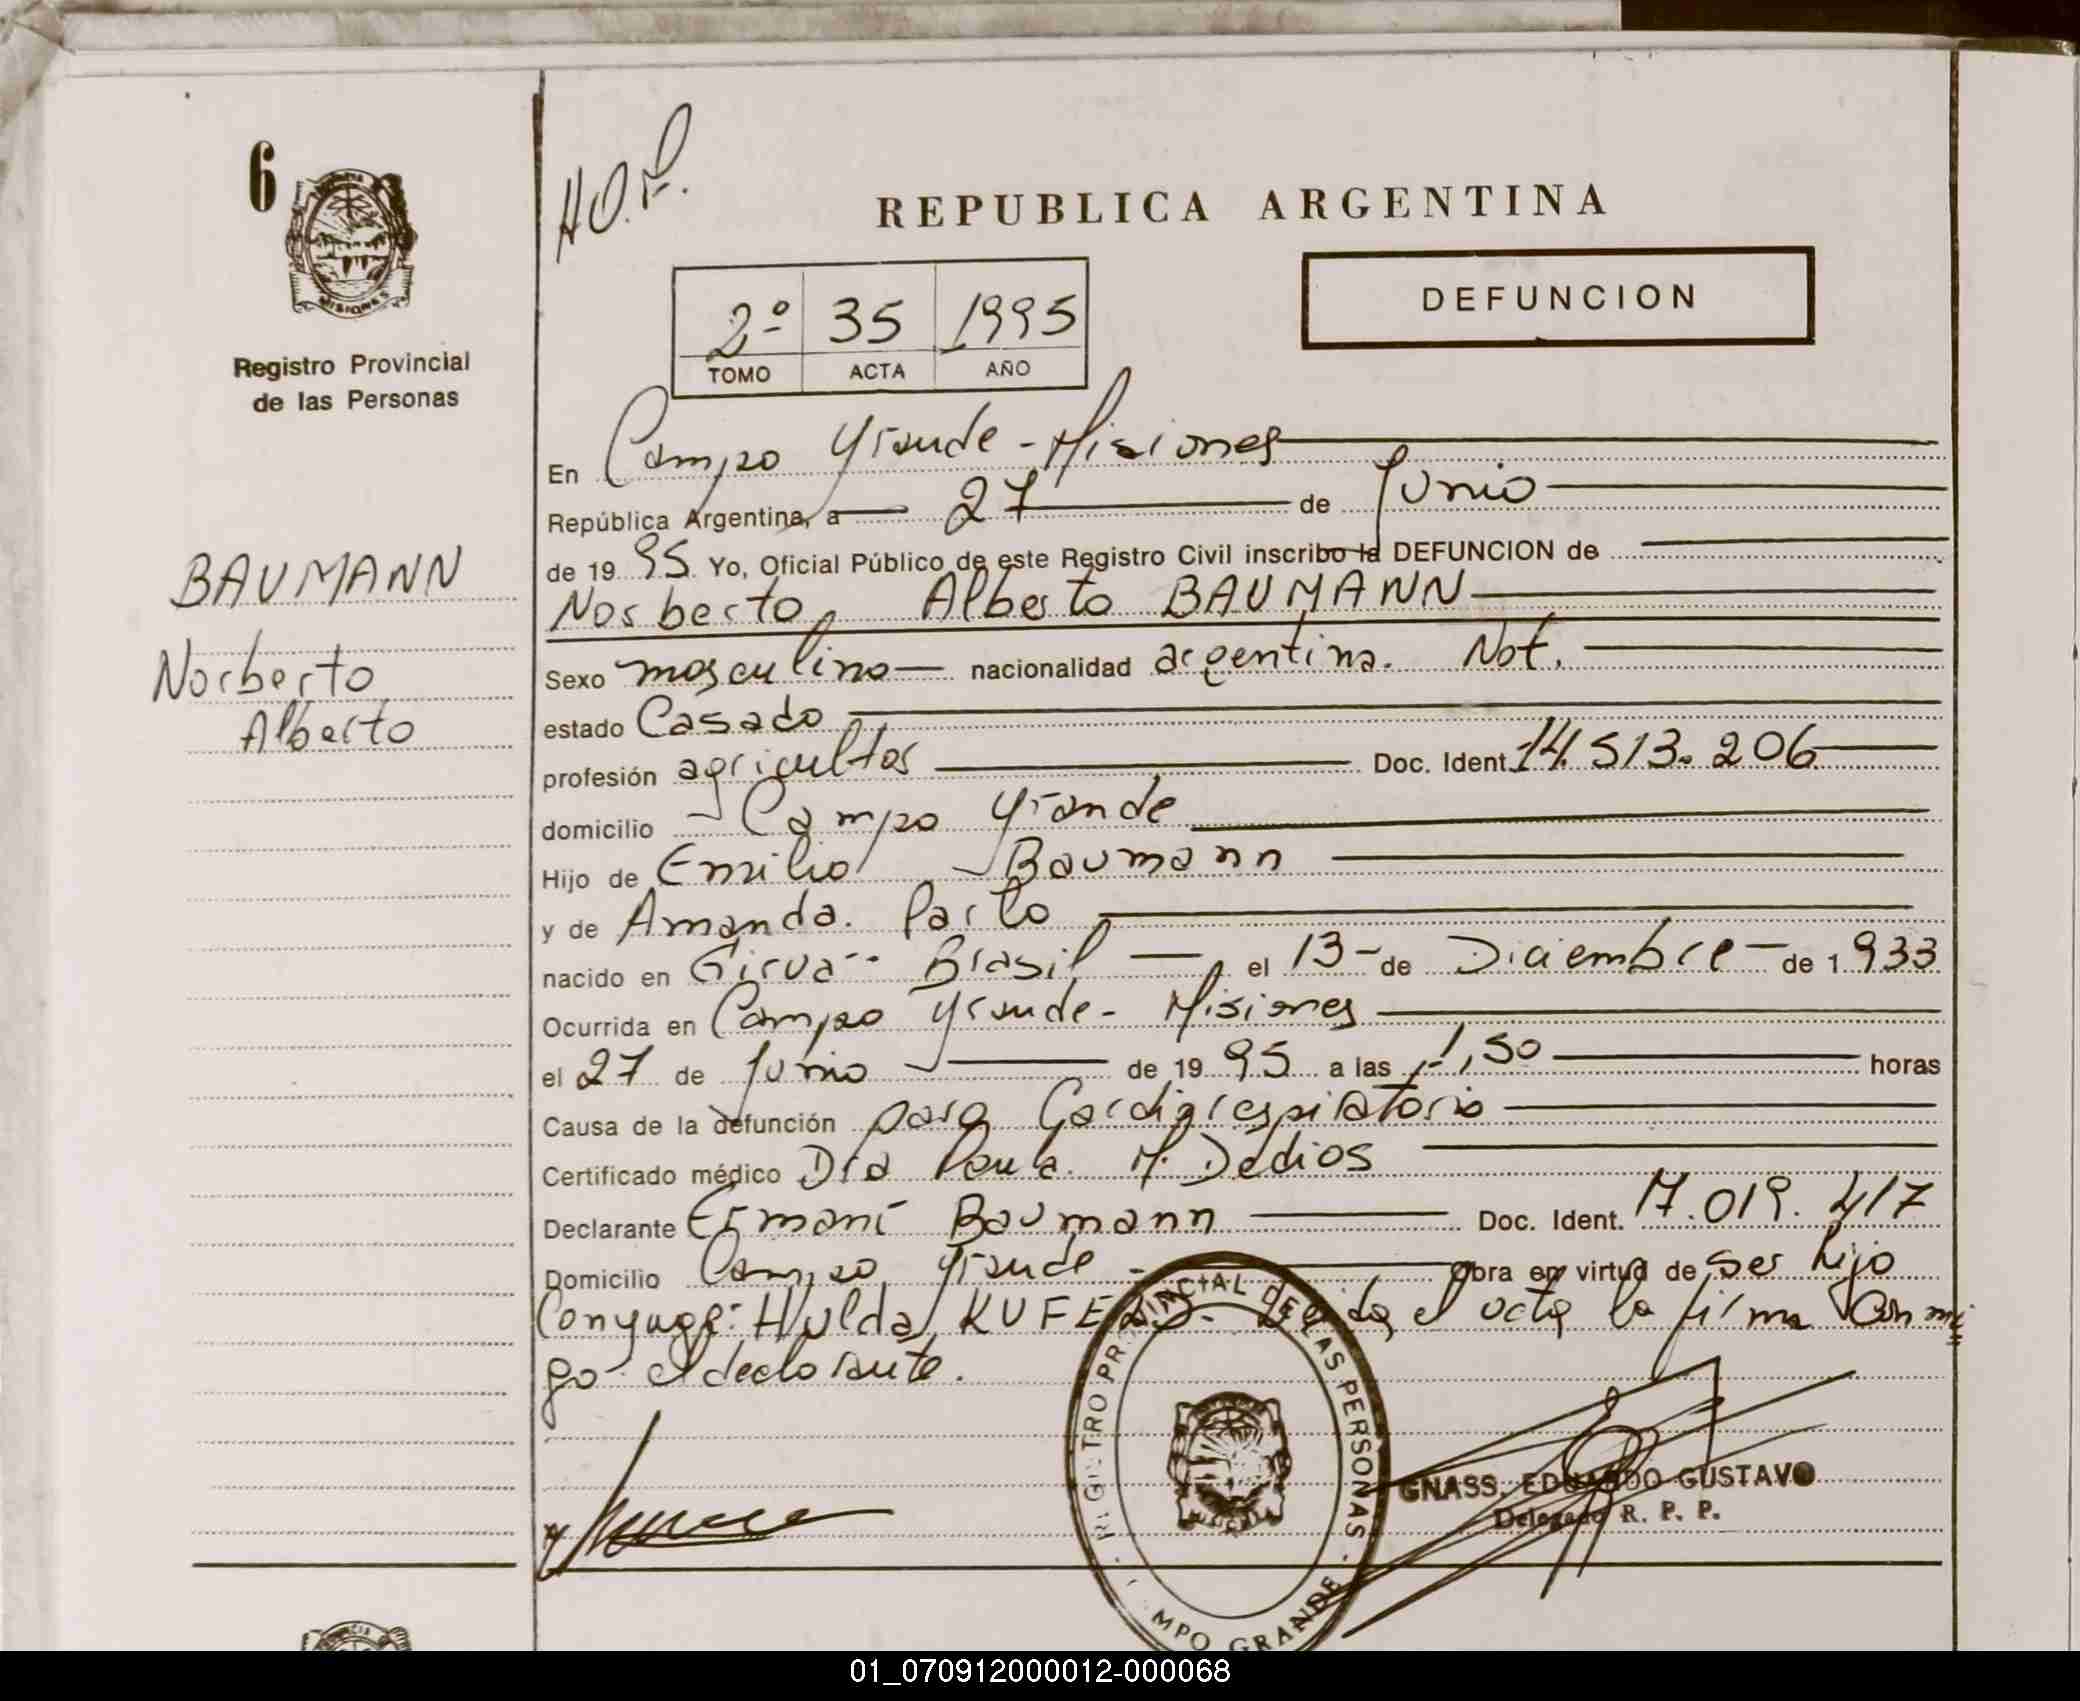 6
MISIONES
Registro Provincial
de las Personas
BAUMANN
Norberto
Alberto
REPUBLICA ARGENTINA
DEFUNCION
2º 35 1995
TOMO ACTA AÑO
En Campo Grande - Misiones
República Argentina, a 27 de Junio
de 1995 Yo, Oficial Público de este Registro Civil inscribo la DEFUNCION de
Norberto Alberto BAUMANN
Sexo masculino nacionalidad argentina. Nat.
estado Casado
profesión agricultor Doc. Ident. 14.513.206
domicilio Campo Grande
Hijo de Emilio Baumann
y de Amanda
nacido en Girua - Brasil el 13 de Diciembre de 1933
Ocurrida en Campo Grande - Misiones
el 27 de Junio de 1995 a las 1,50 horas
Causa de la defunción paro Cardiorespiratorio
Certificado médico Dra Paula M. Dedios
Declarante Ernani Baumann Doc. Ident. 17.019.417
Domicilio Campo Grande - Obra en virtud de ser hijo
Conyuge: Hulda Leida el acta la firma Conmi
go el declarante.
REGISTRO PROVINCIAL DE LAS PERSONAS
CAMPO GRANDE
GNASS, EDUARDO GUSTAVO
Delegado R. P. P.
01_070912000012-000068